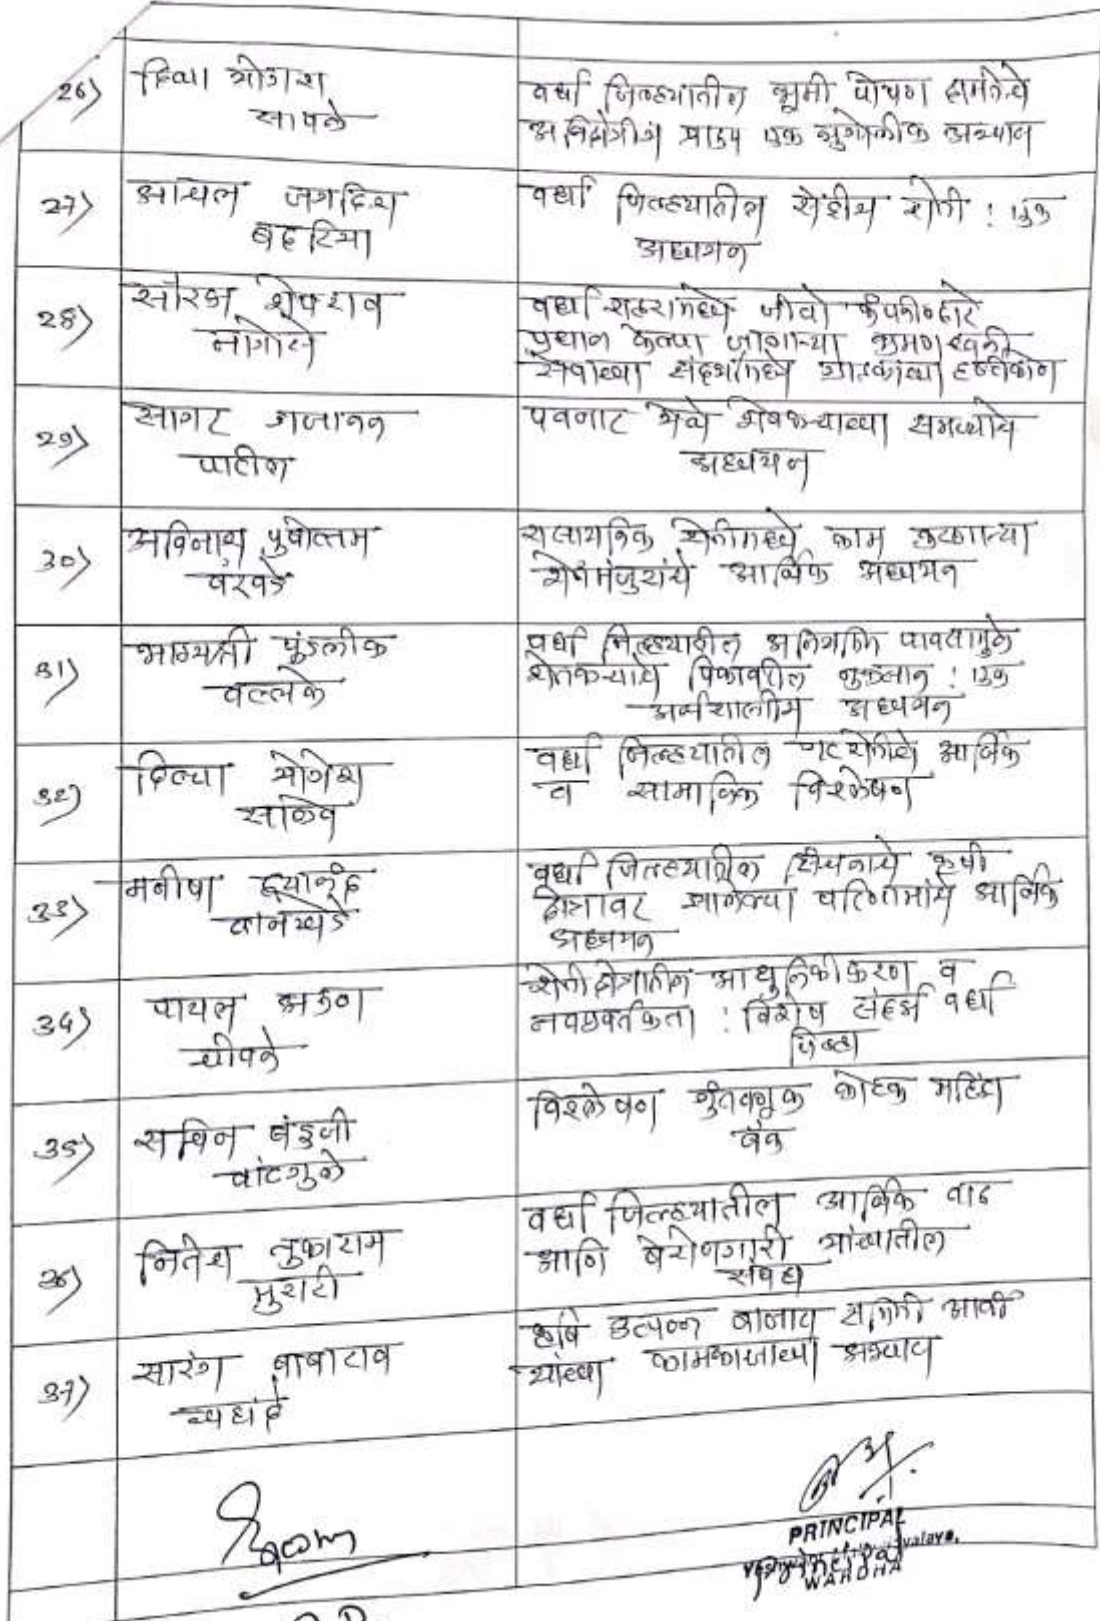 26)
दिव्या योगेश
साबळे
वर्धा जिल्ह्यातील भूमी पोषण क्षमतेचे
प्रारुप एक भुगोलीक अभ्यास
27)
आचल जगदिश
बहटिया
वर्धा जिल्ह्यातील सेंद्रीय शेती : एक
अध्ययन
28)
सौरभ शेषराव
नागोसे
वर्धा शहरामध्ये जीवो कंपनीव्दारे
प्रधान केल्या जाणाऱ्या भ्रमणध्वनी
सेवाच्या संदर्भामध्ये ग्राहकांच्या दृष्टीकोण
29)
सागर गजानन
पाटील
पवनार येथे शेषकऱ्याच्या समस्येचे
अध्ययन
30)
अविनाश पुषोत्तम
वरखडे
रासायनिक शेतीमध्ये काम करणाऱ्या
शेतमंजुरांचे आर्थिक अध्ययन
31)
भाग्यश्री पुंडलीक
वल्लके
वर्धा जिल्ह्यातील पावसामुळे
शेतकऱ्याचे पिकावरील नुकसान : एक
अर्थशास्त्रीय अध्ययन
32)
दिव्या योगेश
साळवे
वर्धा जिल्ह्यातील गट शेतीचे आर्थिक
व सामाजिक विश्लेषण
33)
मनीषा दयानंद
वानखेडे
वर्धा जिल्ह्यातील सिंचनाचे कृषी
क्षेत्रावर झालेल्या परिणामांचे आर्थिक
अध्ययन
34)
पायल अरुण
चोपले
शेती क्षेत्रातील आधुनिकीकरण व
नवप्रवर्तकता : विशेष संदर्भ वर्धा
जिल्हा
35)
सचिन बंडुजी
वांटगुळे
विश्लेषण गुंतवणूक कोटक महिंद्रा
बँक
36)
नितेश तुकाराम
मुराटी
वर्धा जिल्ह्यातील आर्थिक वाढ
आणि बेरोजगारी यांच्यातील
संबंध
37)
सारंग बाबाराव
चहांदे
कृषि उत्पन्न बाजार समिती आर्वी
यांच्या कामकाजाचा अभ्यास
PRINCIPAL
WARDHA